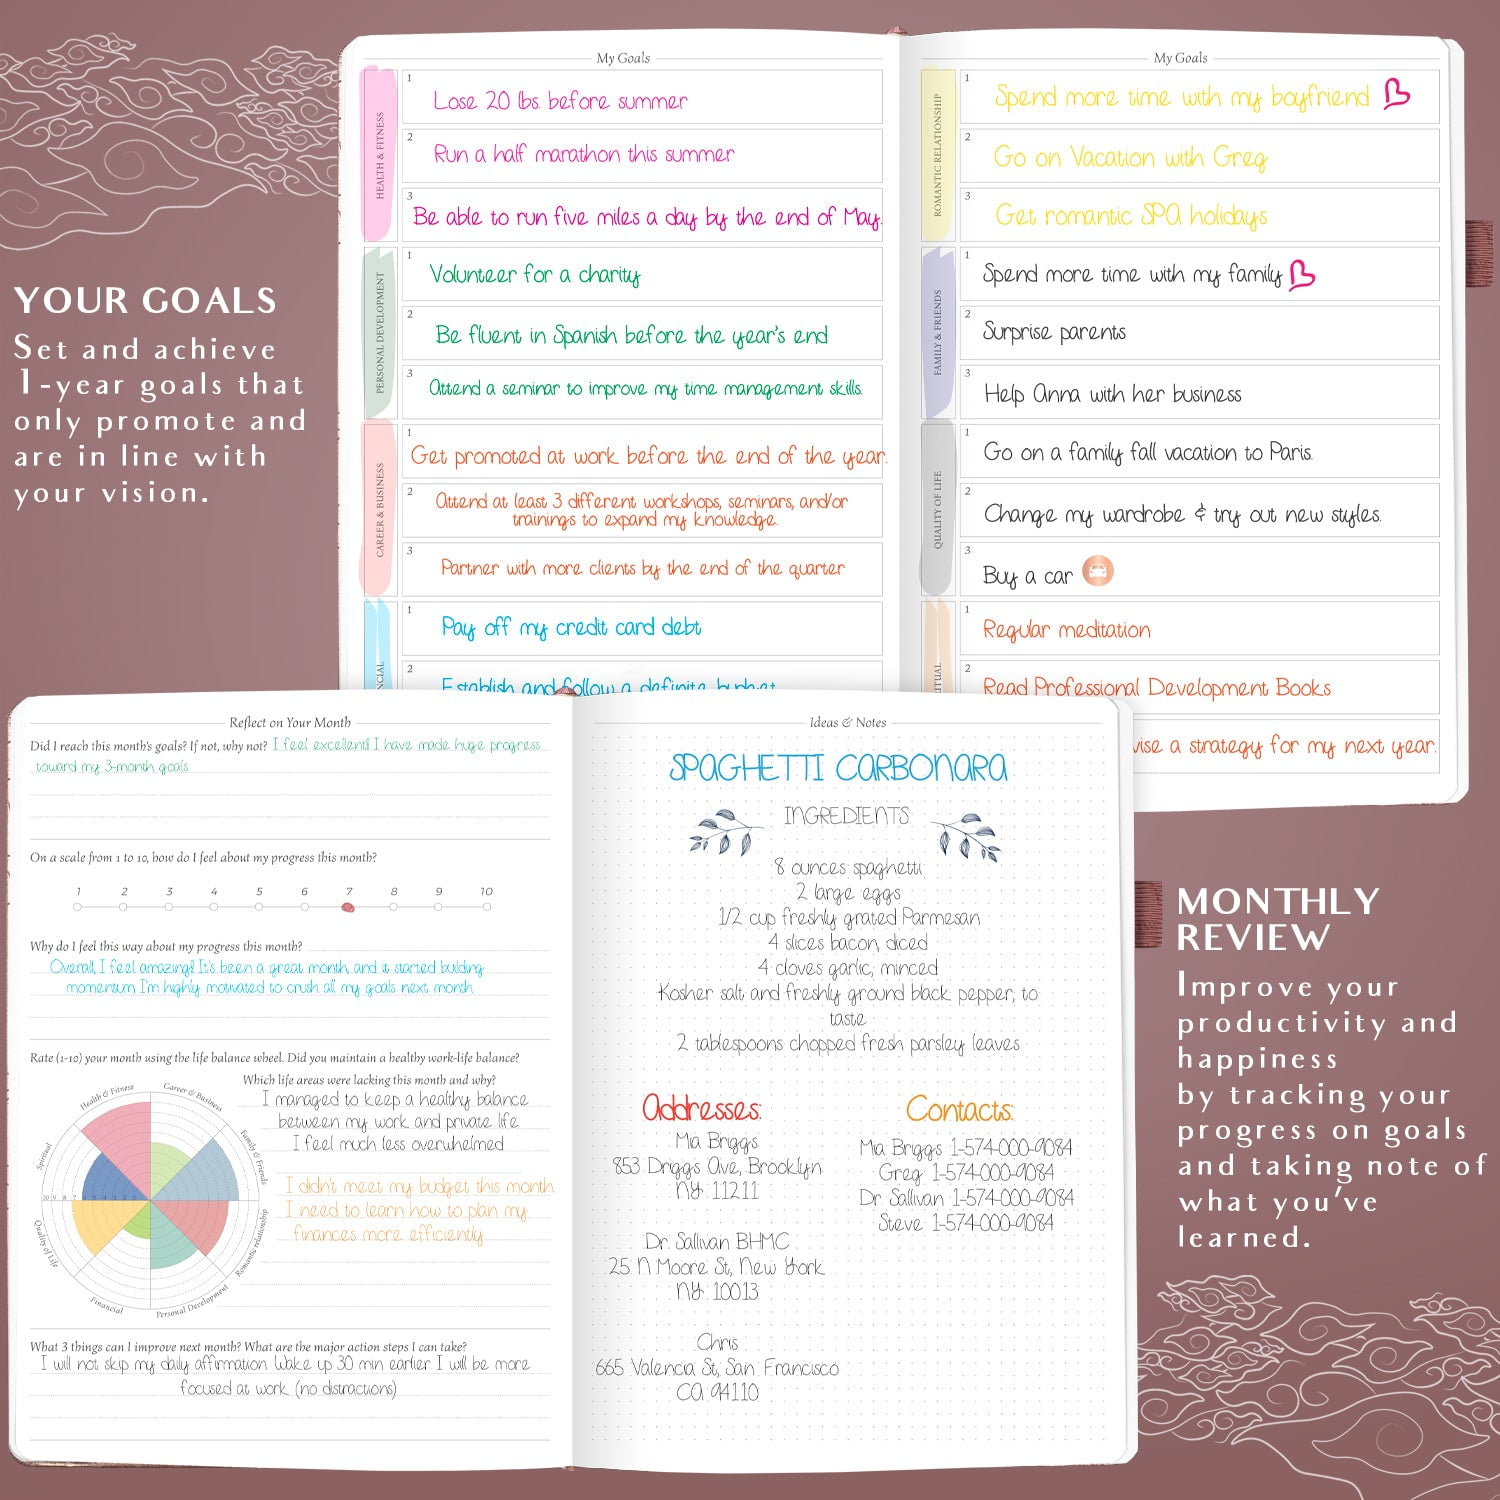 My Goals
HEALTH & FITNESS
1
Lose 20 lbs. before summer
2
Run a half marathon this summer
3
Be able to run five miles a day by the end of May.
PERSONAL DEVELOPMENT
1
Volunteer for a charity
2
Be fluent in Spanish before the year's end
3
Attend a seminar to improve my time management skills.
CAREER & BUSINESS
1
Get promoted at work before the end of the year.
2
Attend at least 3 different workshops, seminars, and/or
trainings to expand my knowledge.
3
Partner with more clients by the end of the quarter
1
Pay off my credit card debt
2
Establish and follow a definite budget
My Goals
ROMANTIC RELATIONSHIP
1
Spend more time with my boyfriend
2
Go on Vacation with Greg
3
Get romantic SPA holidays
FAMILY & FRIENDS
1
Spend more time with my family
2
Surprise parents
3
Help Anna with her business
QUALITY OF LIFE
1
Go on a family fall vacation to Paris.
2
Change my wardrobe & try out new styles.
3
Buy a car
1
Regular meditation
2
Read Professional Development Books
vise a strategy for my next year.
YOUR GOALS
Set and achieve
1-year goals that
only promote and
are in line with
your vision.
Reflect on Your Month
Did I reach this month's goals? If not, why not? I feel excellent! I have made huge progress
toward my 3-month goals
On a scale from 1 to 10, how do I feel about my progress this month?
1 2 3 4 5 6 7 8 9 10
Why do I feel this way about my progress this month?
Overall, I feel amazing! It's been a great month, and it started building
momentum. I'm highly motivated to crush all my goals next month.
Rate (1-10) your month using the life balance wheel. Did you maintain a healthy work-life balance?
Health & Fitness
Career & Business
Family & Friends
Romantic relationship
Personal Development
Financial
Quality of Life
Spiritual
10 9 8 7 6 5 4 3 2 1
Which life areas were lacking this month and why?
I managed to keep a healthy balance
between my work and private life
I feel much less overwhelmed
I didn't meet my budget this month
I need to learn how to plan my
finances more efficiently
What 3 things can I improve next month? What are the major action steps I can take?
I will not skip my daily affirmation. Wake up 30 min earlier. I will be more
focused at work (no distractions)
Ideas & Notes
SPAGHETTI CARBONARA
INGREDIENTS
8 ounces spaghetti
2 large eggs
1/2 cup freshly grated Parmesan
4 slices bacon, diced
4 cloves garlic, minced
Kosher salt and freshly ground black pepper, to
taste
2 tablespoons chopped fresh parsley leaves
Addresses:
Mia Briggs
853 Driggs Ave, Brooklyn
NY 11211
Dr. Sallivan BHMC
25 N Moore St, New York
NY 10013
Chris
665 Valencia St, San Francisco
CA 94110
Contacts:
Mia Briggs 1-574-000-9084
Greg 1-574-000-9084
Dr Sallivan 1-574-000-9084
Steve 1-574-000-9084
MONTHLY
REVIEW
Improve your
productivity and
happiness
by tracking your
progress on goals
and taking note of
what you've
learned.